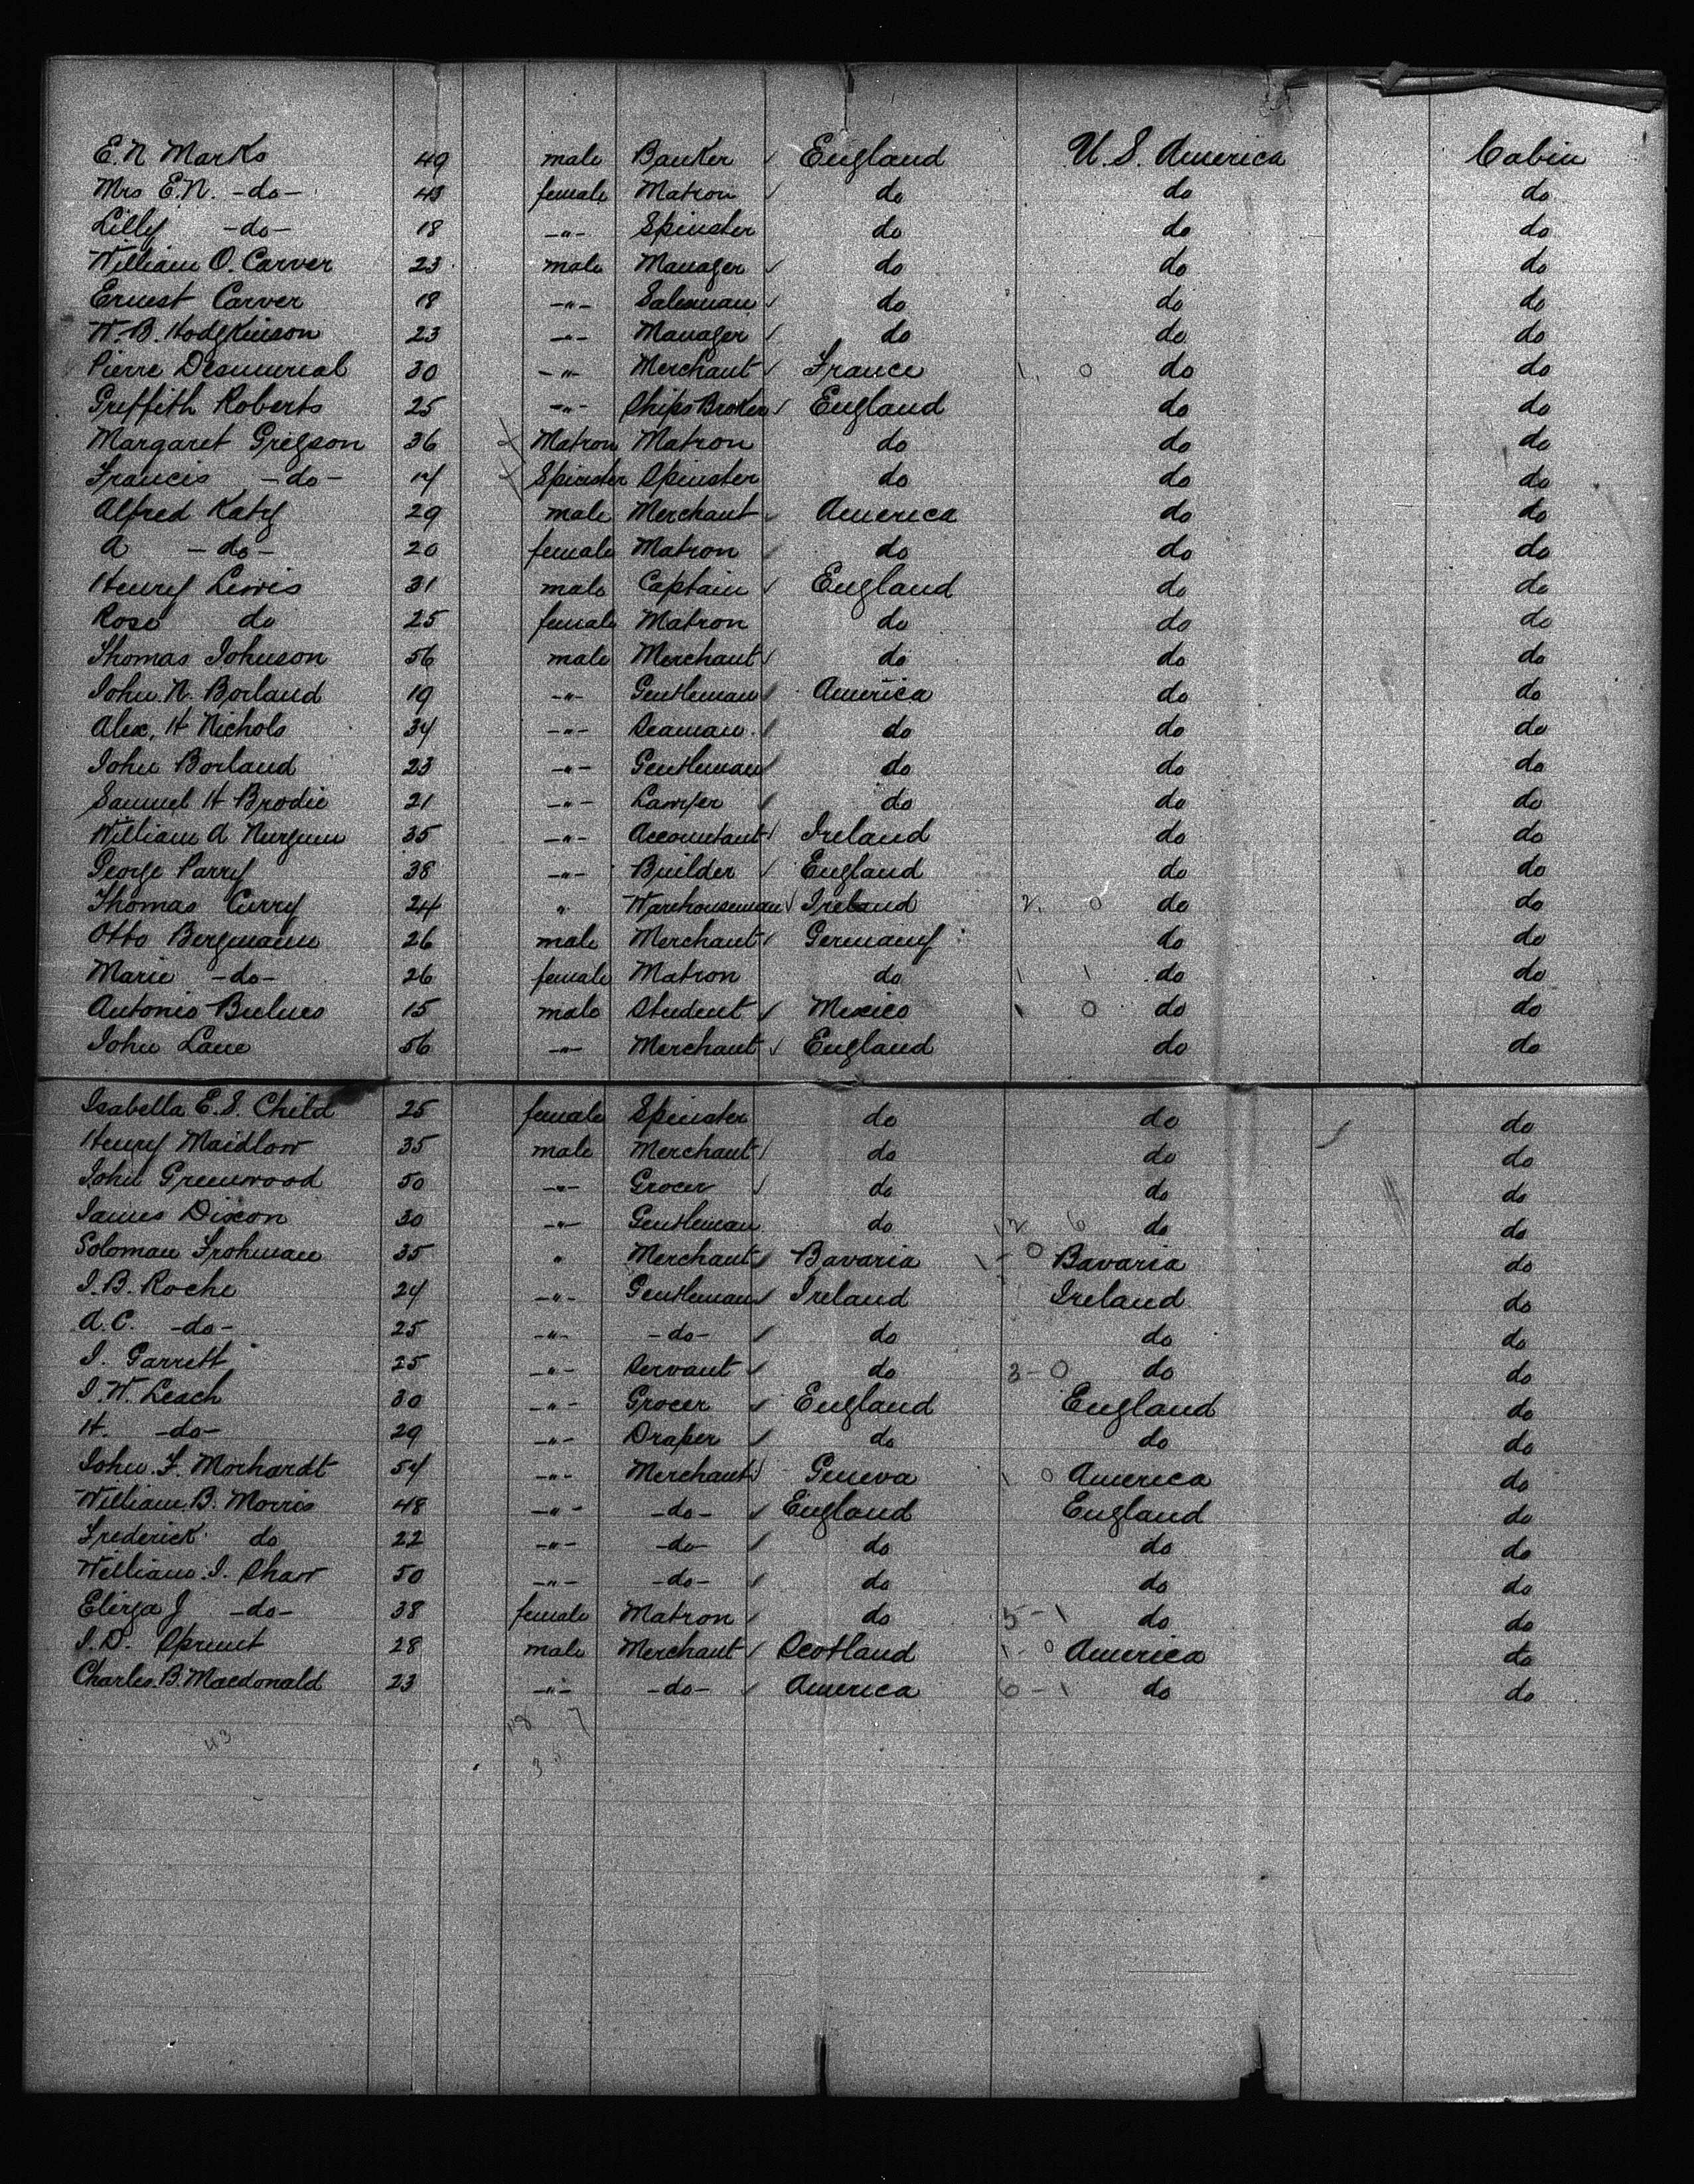 E. N Marks 49 male Banker England U. S. America Cabin
Mrs E. N. -do- 43 female Matron do do do
Lilly -do- 18 -"- Spinster do do do
William O. Carver 23 male Manager do do do
Ernest Carver 18 -"- Salesman do do do
W. B. Hodgkinson 23 -"- Manager do do do
Pierre 30 -"- Merchant France 1. 0 do do
Griffith Roberts 25 -"- Ships Broker England do do
Margaret Grigson 36 Matron Matron do do do
Francis -do- 14 Spinster Spinster do do do
Alfred Katz 29 male Merchant America do do
A -do- 20 female Matron do do do
Henry Lewis 31 male Captain England do do
Rose do 25 female Matron do do do
Thomas Johnson 56 male Merchant do do do
John N. Borland 19 -"- Gentleman America do do
Alex, H Nichols 34 -"- Seaman do do do
John Borland 23 -"- Gentleman do do do
Samuel H Brodie 21 -"- Lawyer do do do
William A 35 -"- Accountant Ireland do do
George Parry 38 -"- Builder England do do
Thomas Curry 24 " Warehouseman Ireland 2. 0 do do
Otto Bergmann 26 male Merchant Germany do do
Marie -do- 26 female Matron do 1 1 do do
Antonio 15 male Student Mexico 1 0 do do
John Lane 56 -"- Merchant England do do
Isabella E. S. Child 25 female Spinster do do do
Henry Maidlow 35 male Merchant do do do
John Greenwood 50 -"- Grocer do do do
James Dixon 30 -"- Gentleman do 12 6 do do
Soloman Frohman 35 " Merchant Bavaria 1 - 0 Bavaria do
J. B. Roche 24 -"- Gentleman Ireland Ireland do
A. C. -do- 25 -"- -do- do do do
J. Garrett 25 -"- Servant do 3 - 0 do do
J. W. Leach 30 -"- Grocer England England do
H. -do- 29 -"- Draper do do do
John. F. Morhardt 54 -"- Merchant Geneva 1 0 America do
William. B. Morris 48 -"- -do- England England do
Frederick do 22 -"- -do- do do do
William. J. Shaw 50 -"- -do- do do do
Eliza J -do- 38 female Matron do 5 - 1 do do
J. D. Sprunt 28 male Merchant Scotland 1 - 0 America do
Charles. B. Macdonald 23 -"- -do- America 6 - 1 do do
43 18 7